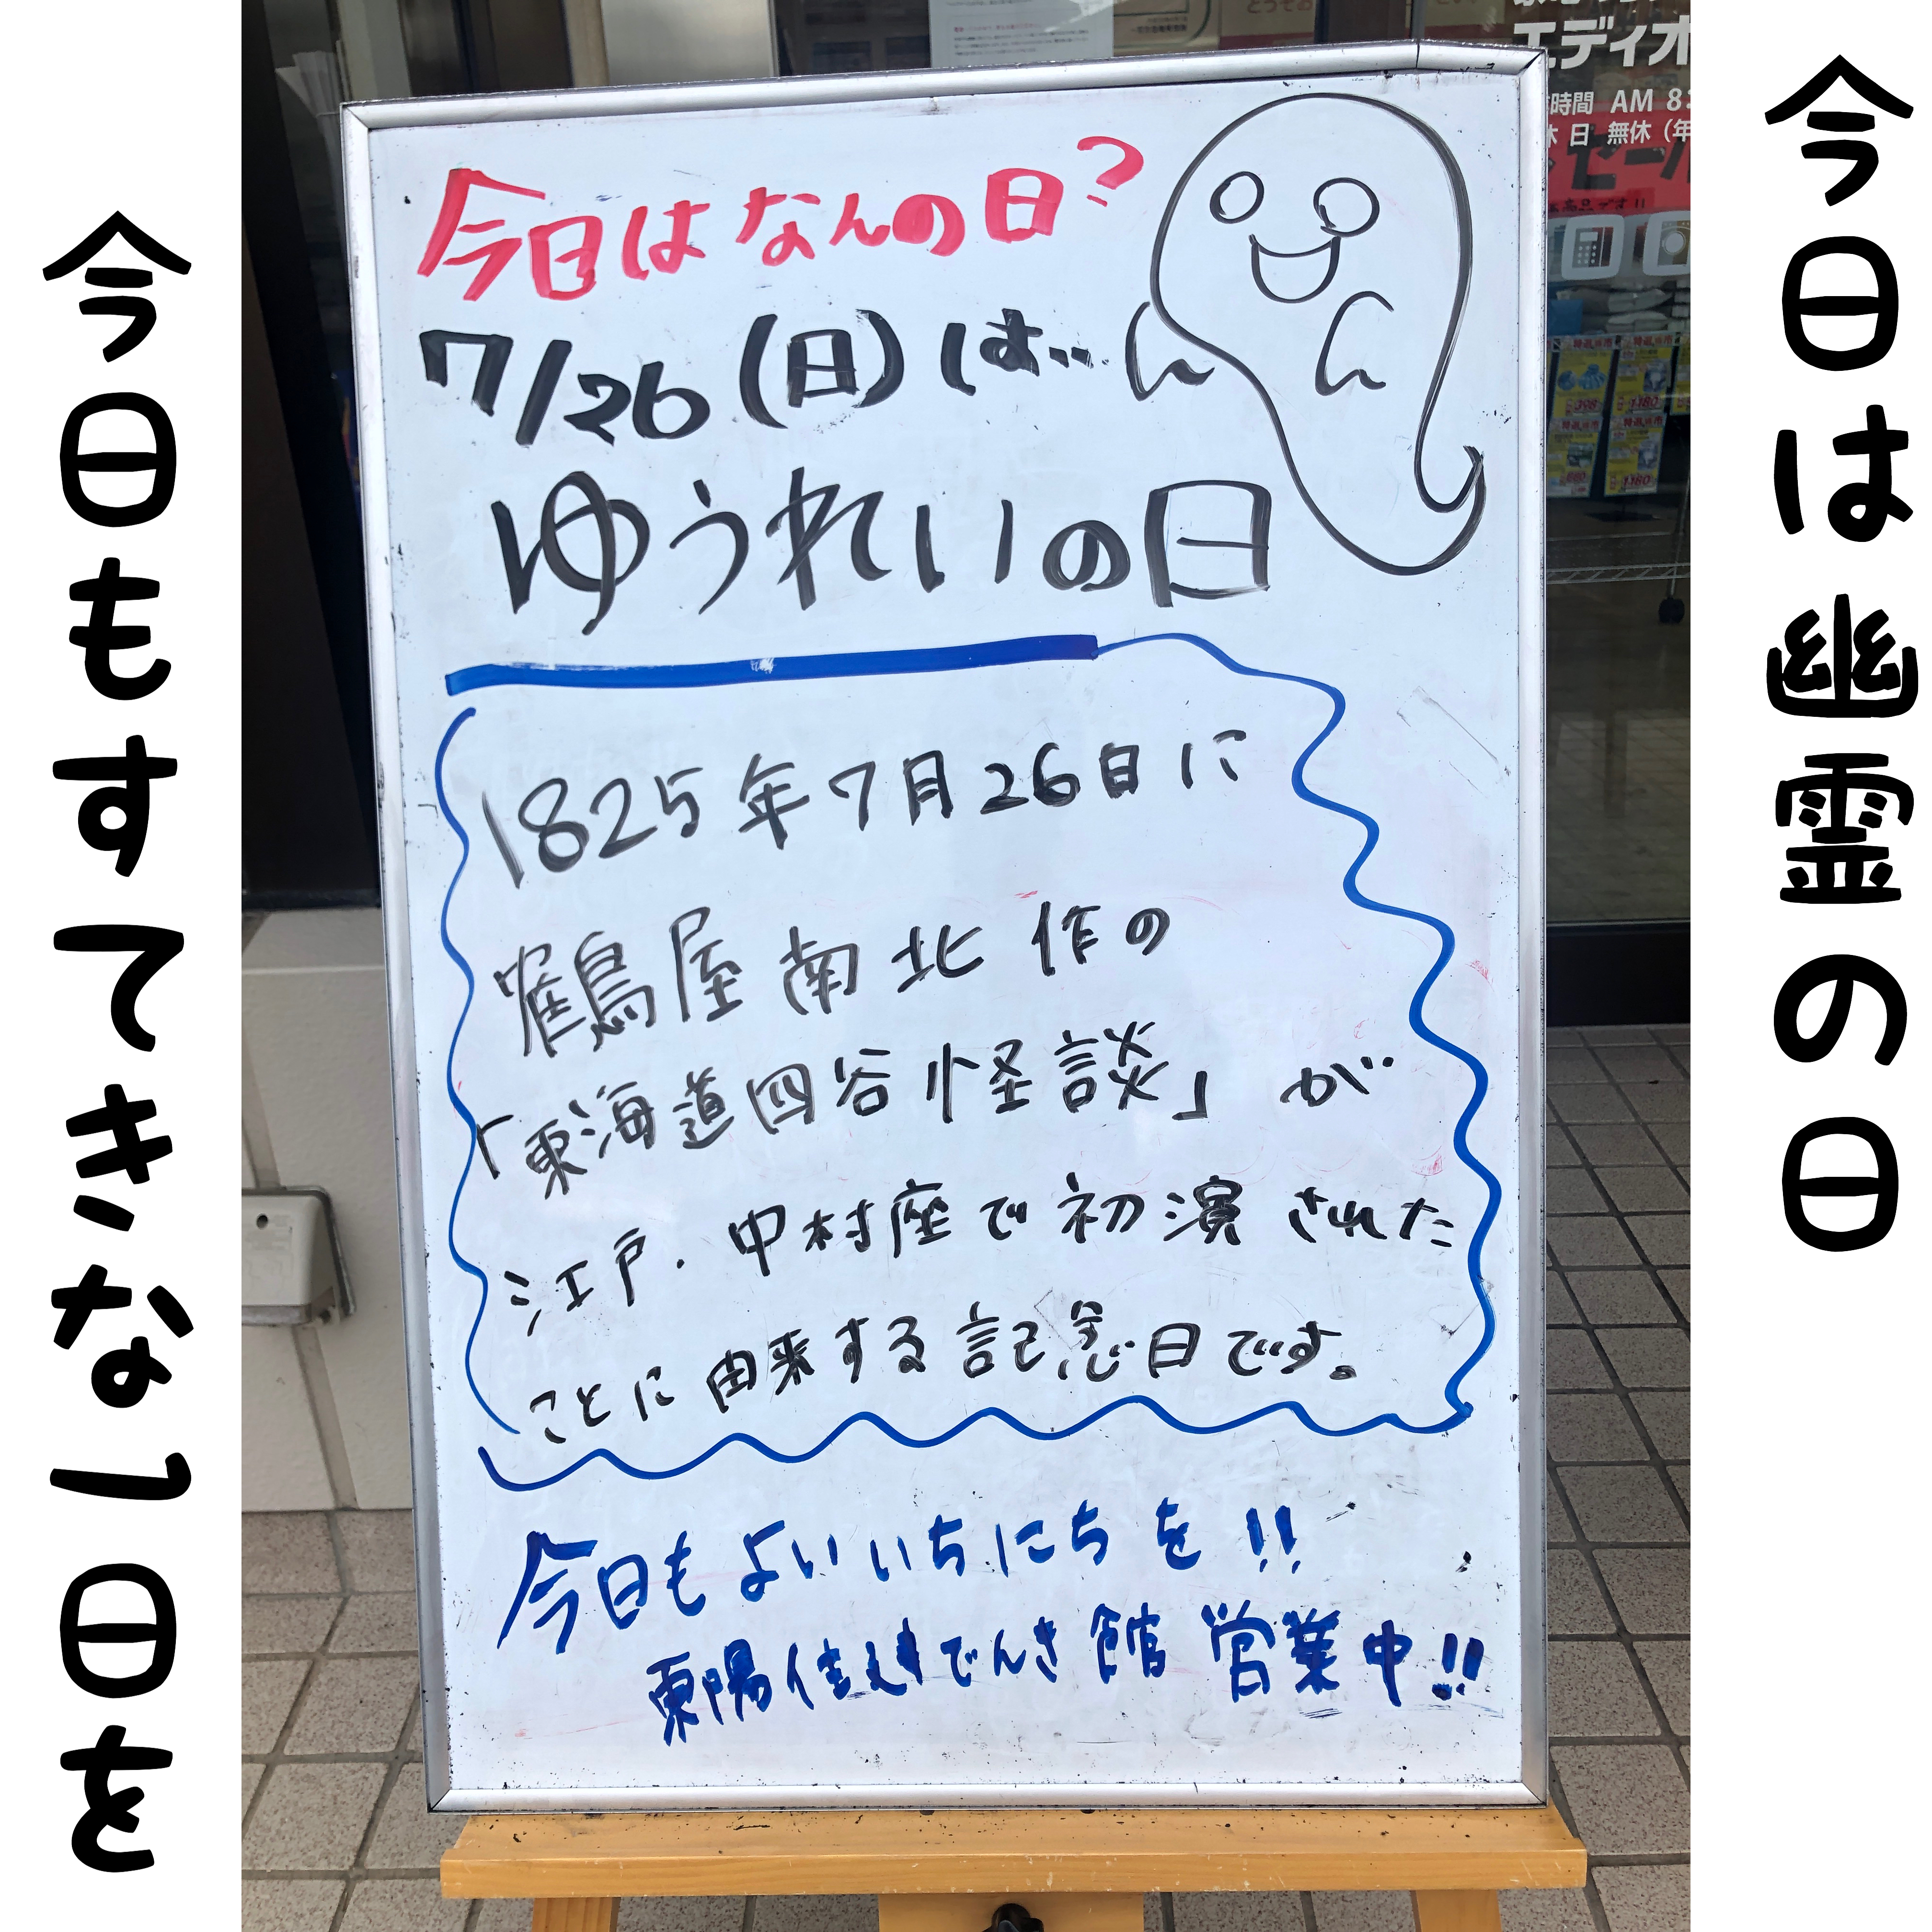 今日は幽霊の日
今日もすてきな一日を
今日はなんの日?
7/26(日)は…
ゆうれいの日
1825年7月26日に
鶴屋南北作の
「東海道四谷怪談」が
江戸・中村座で初演された
ことに由来する記念日です。
今日もよいいちにちを!!
東陽住建でんき館営業中!!
エディオ
時間 AM 8:
休日 無休(年
セール